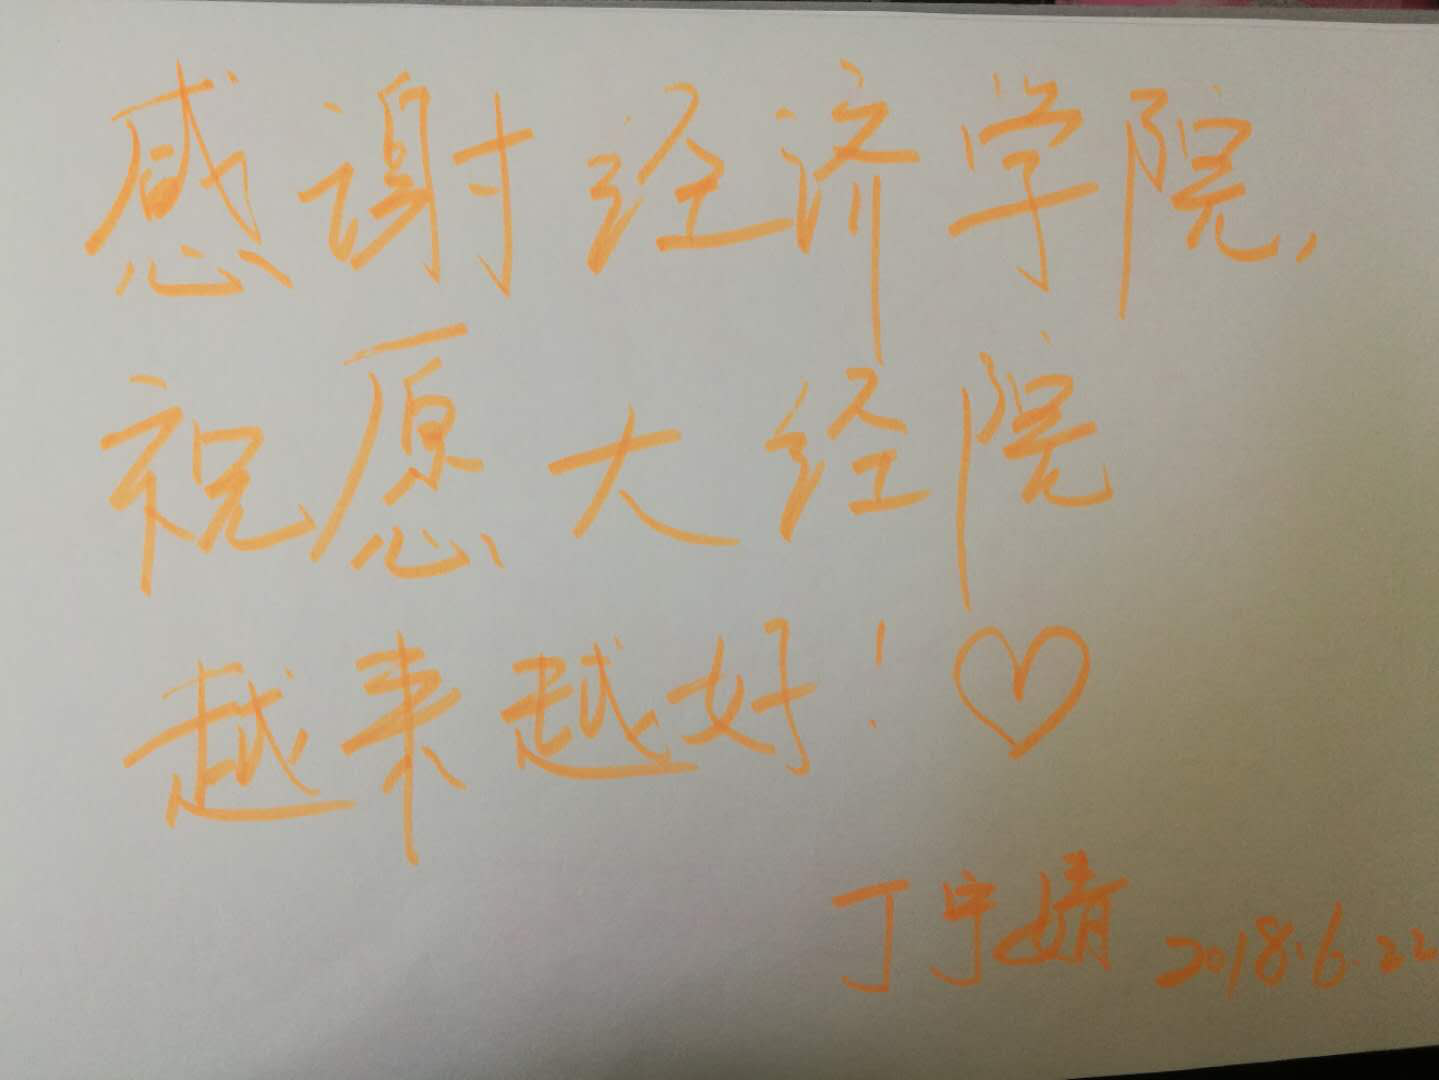 感谢经济学院，
祝愿大经院
越来越好！♡
丁宁婧 2018.6.22